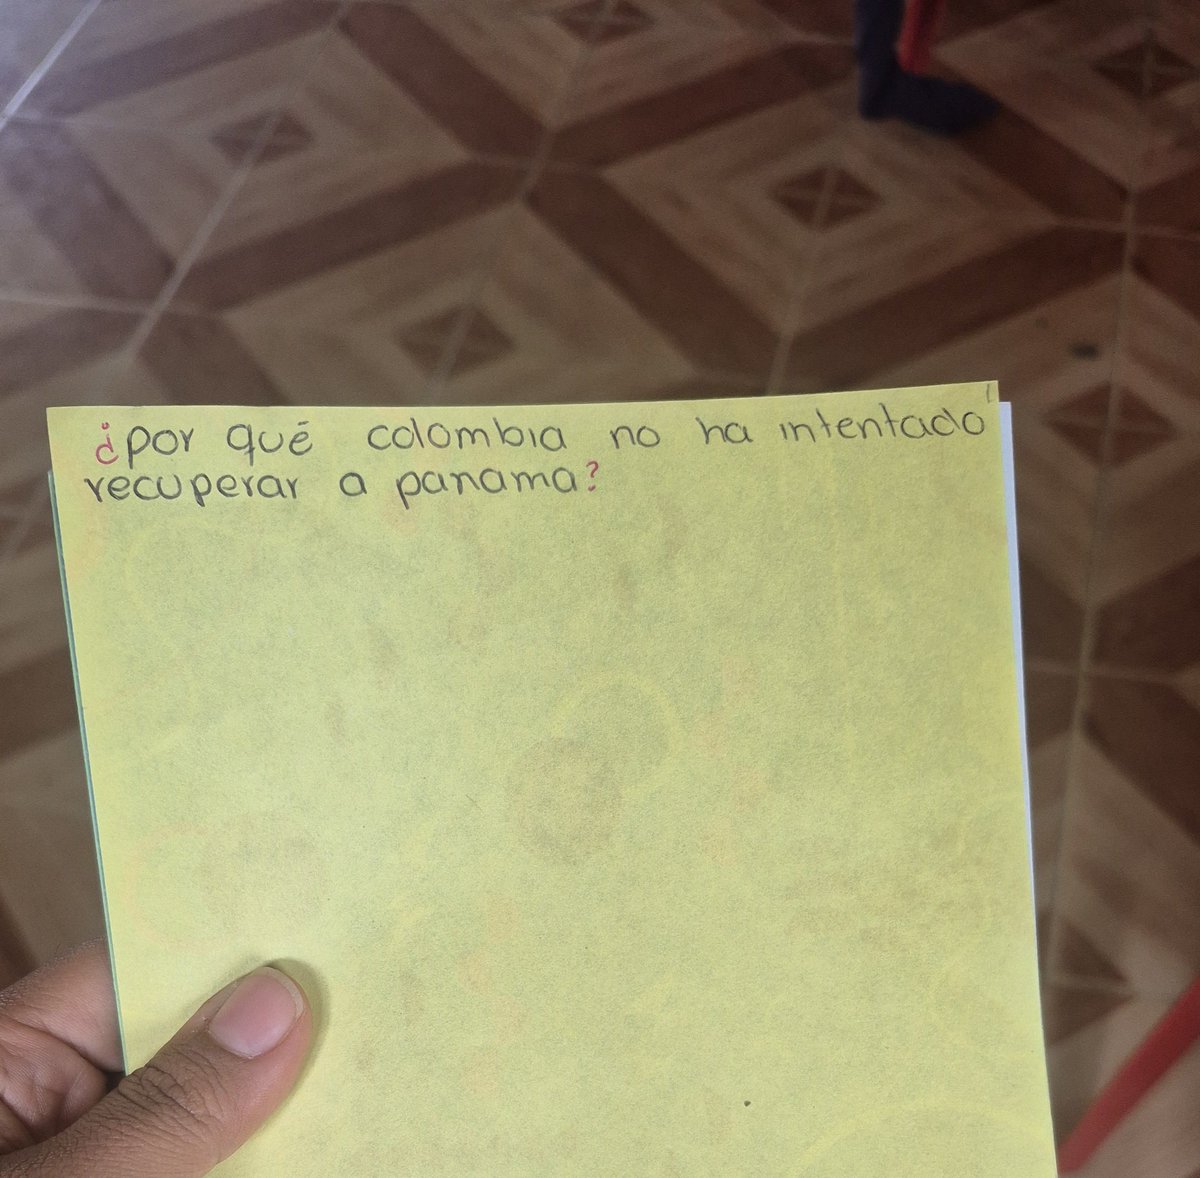 ¿por qué colombia no ha intentado
recuperar a panama?